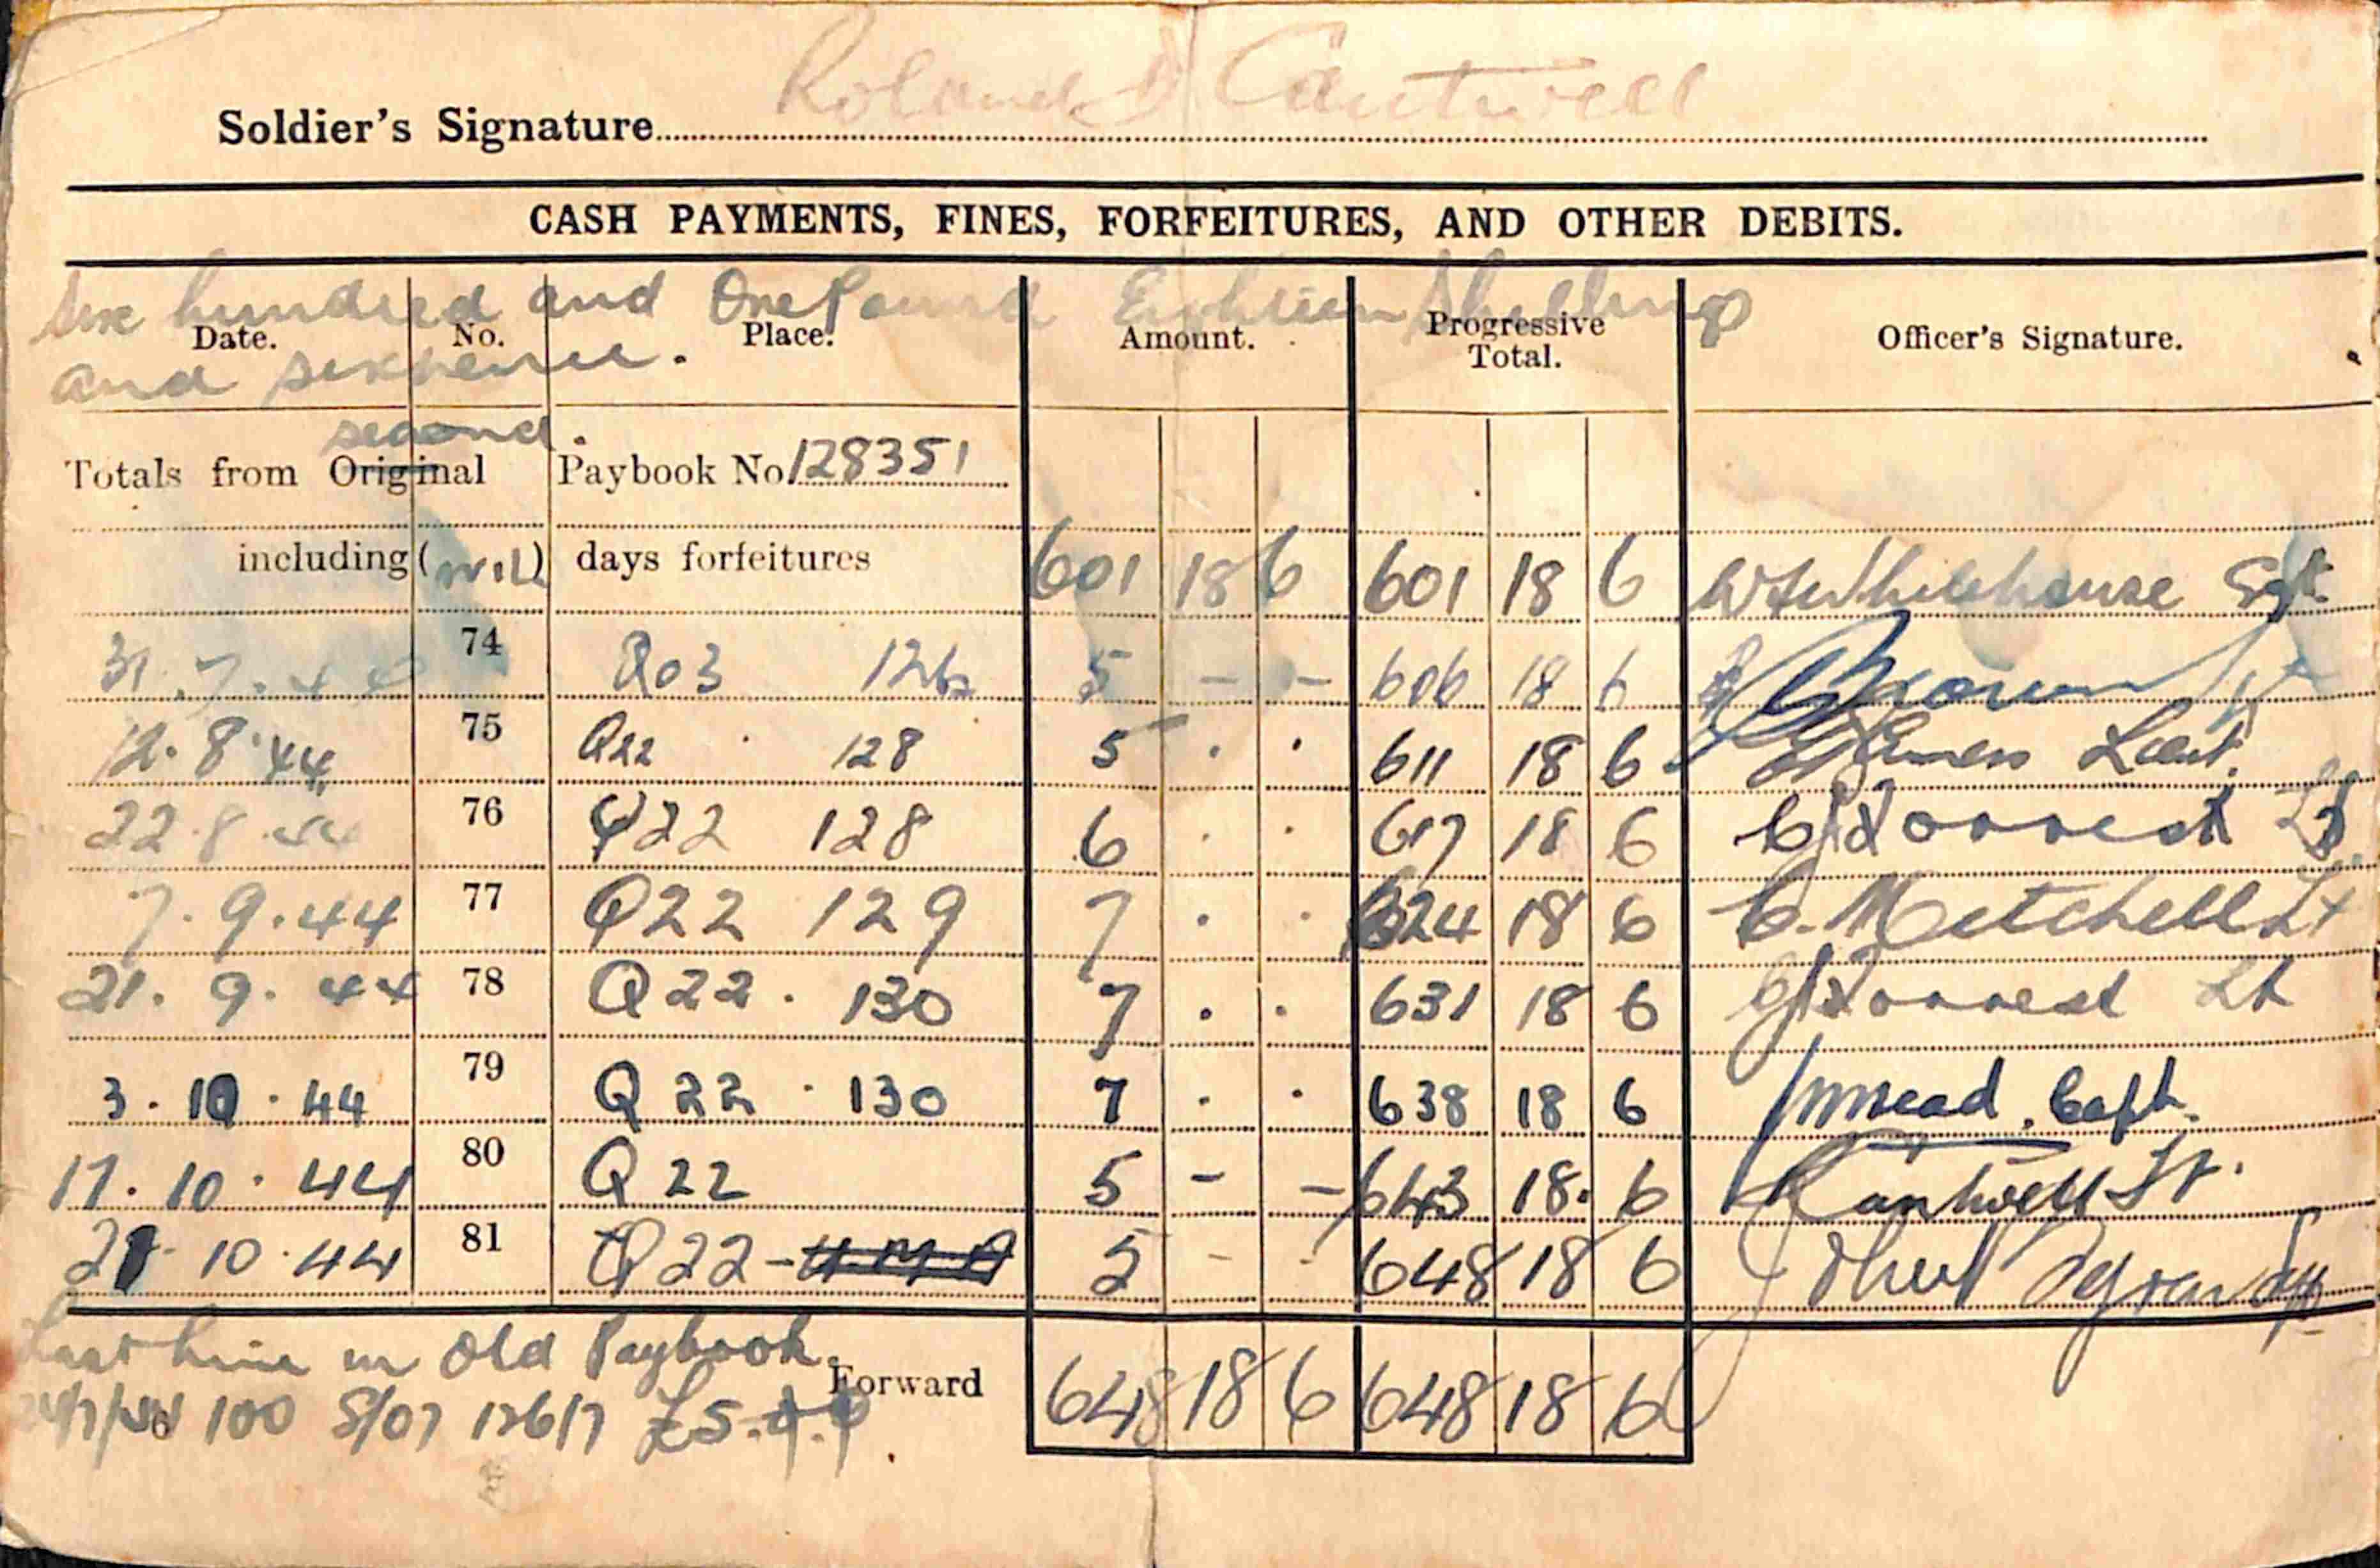 Soldier's Signature Roland Cantwell
CASH PAYMENTS, FINES, FORFEITURES, AND OTHER DEBITS.
Six hundred and One Pound Eighteen Shillings
Date. No. Place. Amount. Progressive Total. Officer's Signature.
and sixpence.
second
Totals from Original Paybook No. 128351
including (nil) days forfeitures 601 18 6 601 18 6 Whitehouse Sgt
31.7.44 74 Q03 126 5 - - 606 18 6
12.8.44 75 Q22 128 5 . . 611 18 6 Lieut.
22.8.44 76 Q22 128 6 . . 617 18 6 Lt
7.9.44 77 Q22 129 7 . . 624 18 6 C. Mitchell Lt
21.9.44 78 Q22 . 130 7 . . 631 18 6 Lt
3.10.44 79 Q22 . 130 7 . . 638 18 6 Mead. Capt.
17.10.44 80 Q22 5 - - 643 18. 6 Lt.
10.44 81 Q22- 5 - - 648 18 6
Last line in Old Paybook.
Forward 648 18 6 648 18 6
100 S/07 £5.